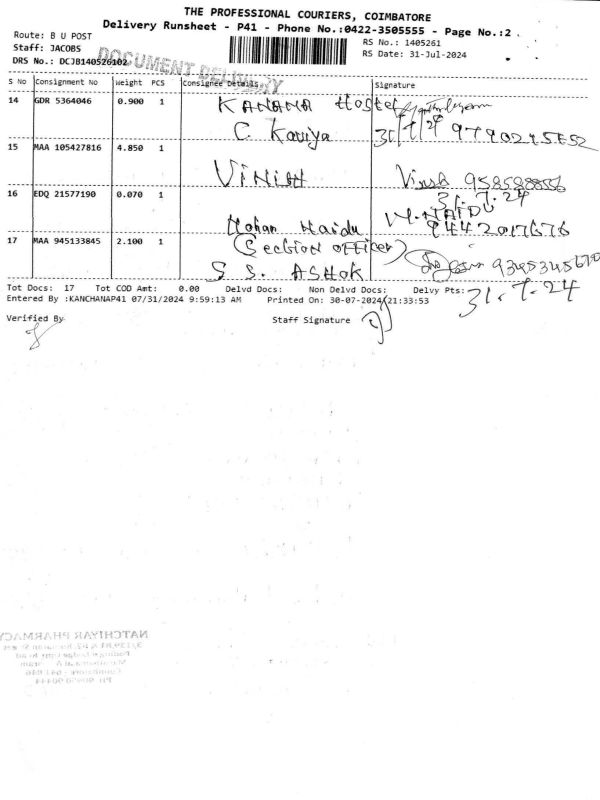 THE PROFESSIONAL COURIERS, COIMBATORE
Delivery Runsheet - P41 - Phone No.:0422-3505555 - Page No.:2
Route: B U POST
RS No.: 1405261
Staff: JACOBS
RS Date: 31-Jul-2024
DRS No.: DCJB140526102
DOCUMENT DELIVERY
S No Consignment No Weight PCS Consignee Details Signature
14 GDR 5364046 0.900 1 KANANA Hostel
C. Kaviya 31/7/24 9790245652
15 MAA 105427816 4.850 1
VINISH Vinsh 9585888556
31.7.24
16 EDQ 21577190 0.070 1
Mohan Naidu M.NAIDU
9442017676
(Section officer)
17 MAA 945133845 2.100 1
S S. ASHOK 9345345670
Tot Docs: 17 Tot COD Amt: 0.00 Delvd Docs: Non Delvd Docs: Delvy Pts:
31.7.24
Entered By :KANCHANAP41 07/31/2024 9:59:13 AM Printed On: 30-07-2024/21:33:53
Verified By Staff Signature
NATCHIYAR PHARMACY